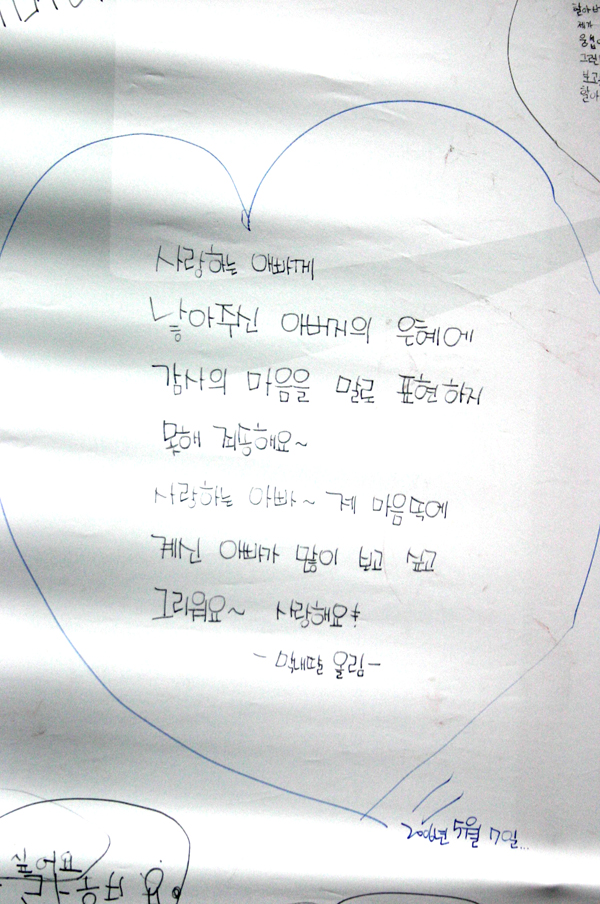 사랑하는 아빠께
낳아주신 아버지의 은혜에
감사의 마음을 말로 표현하지
못해 죄송해요~
사랑하는 아빠~ 제 마음속에
계신 아빠가 많이 보고 싶고
그리워요~ 사랑해요
- 막내딸 올림 -
2006년 5월 7일...
싶어요
제가
보고